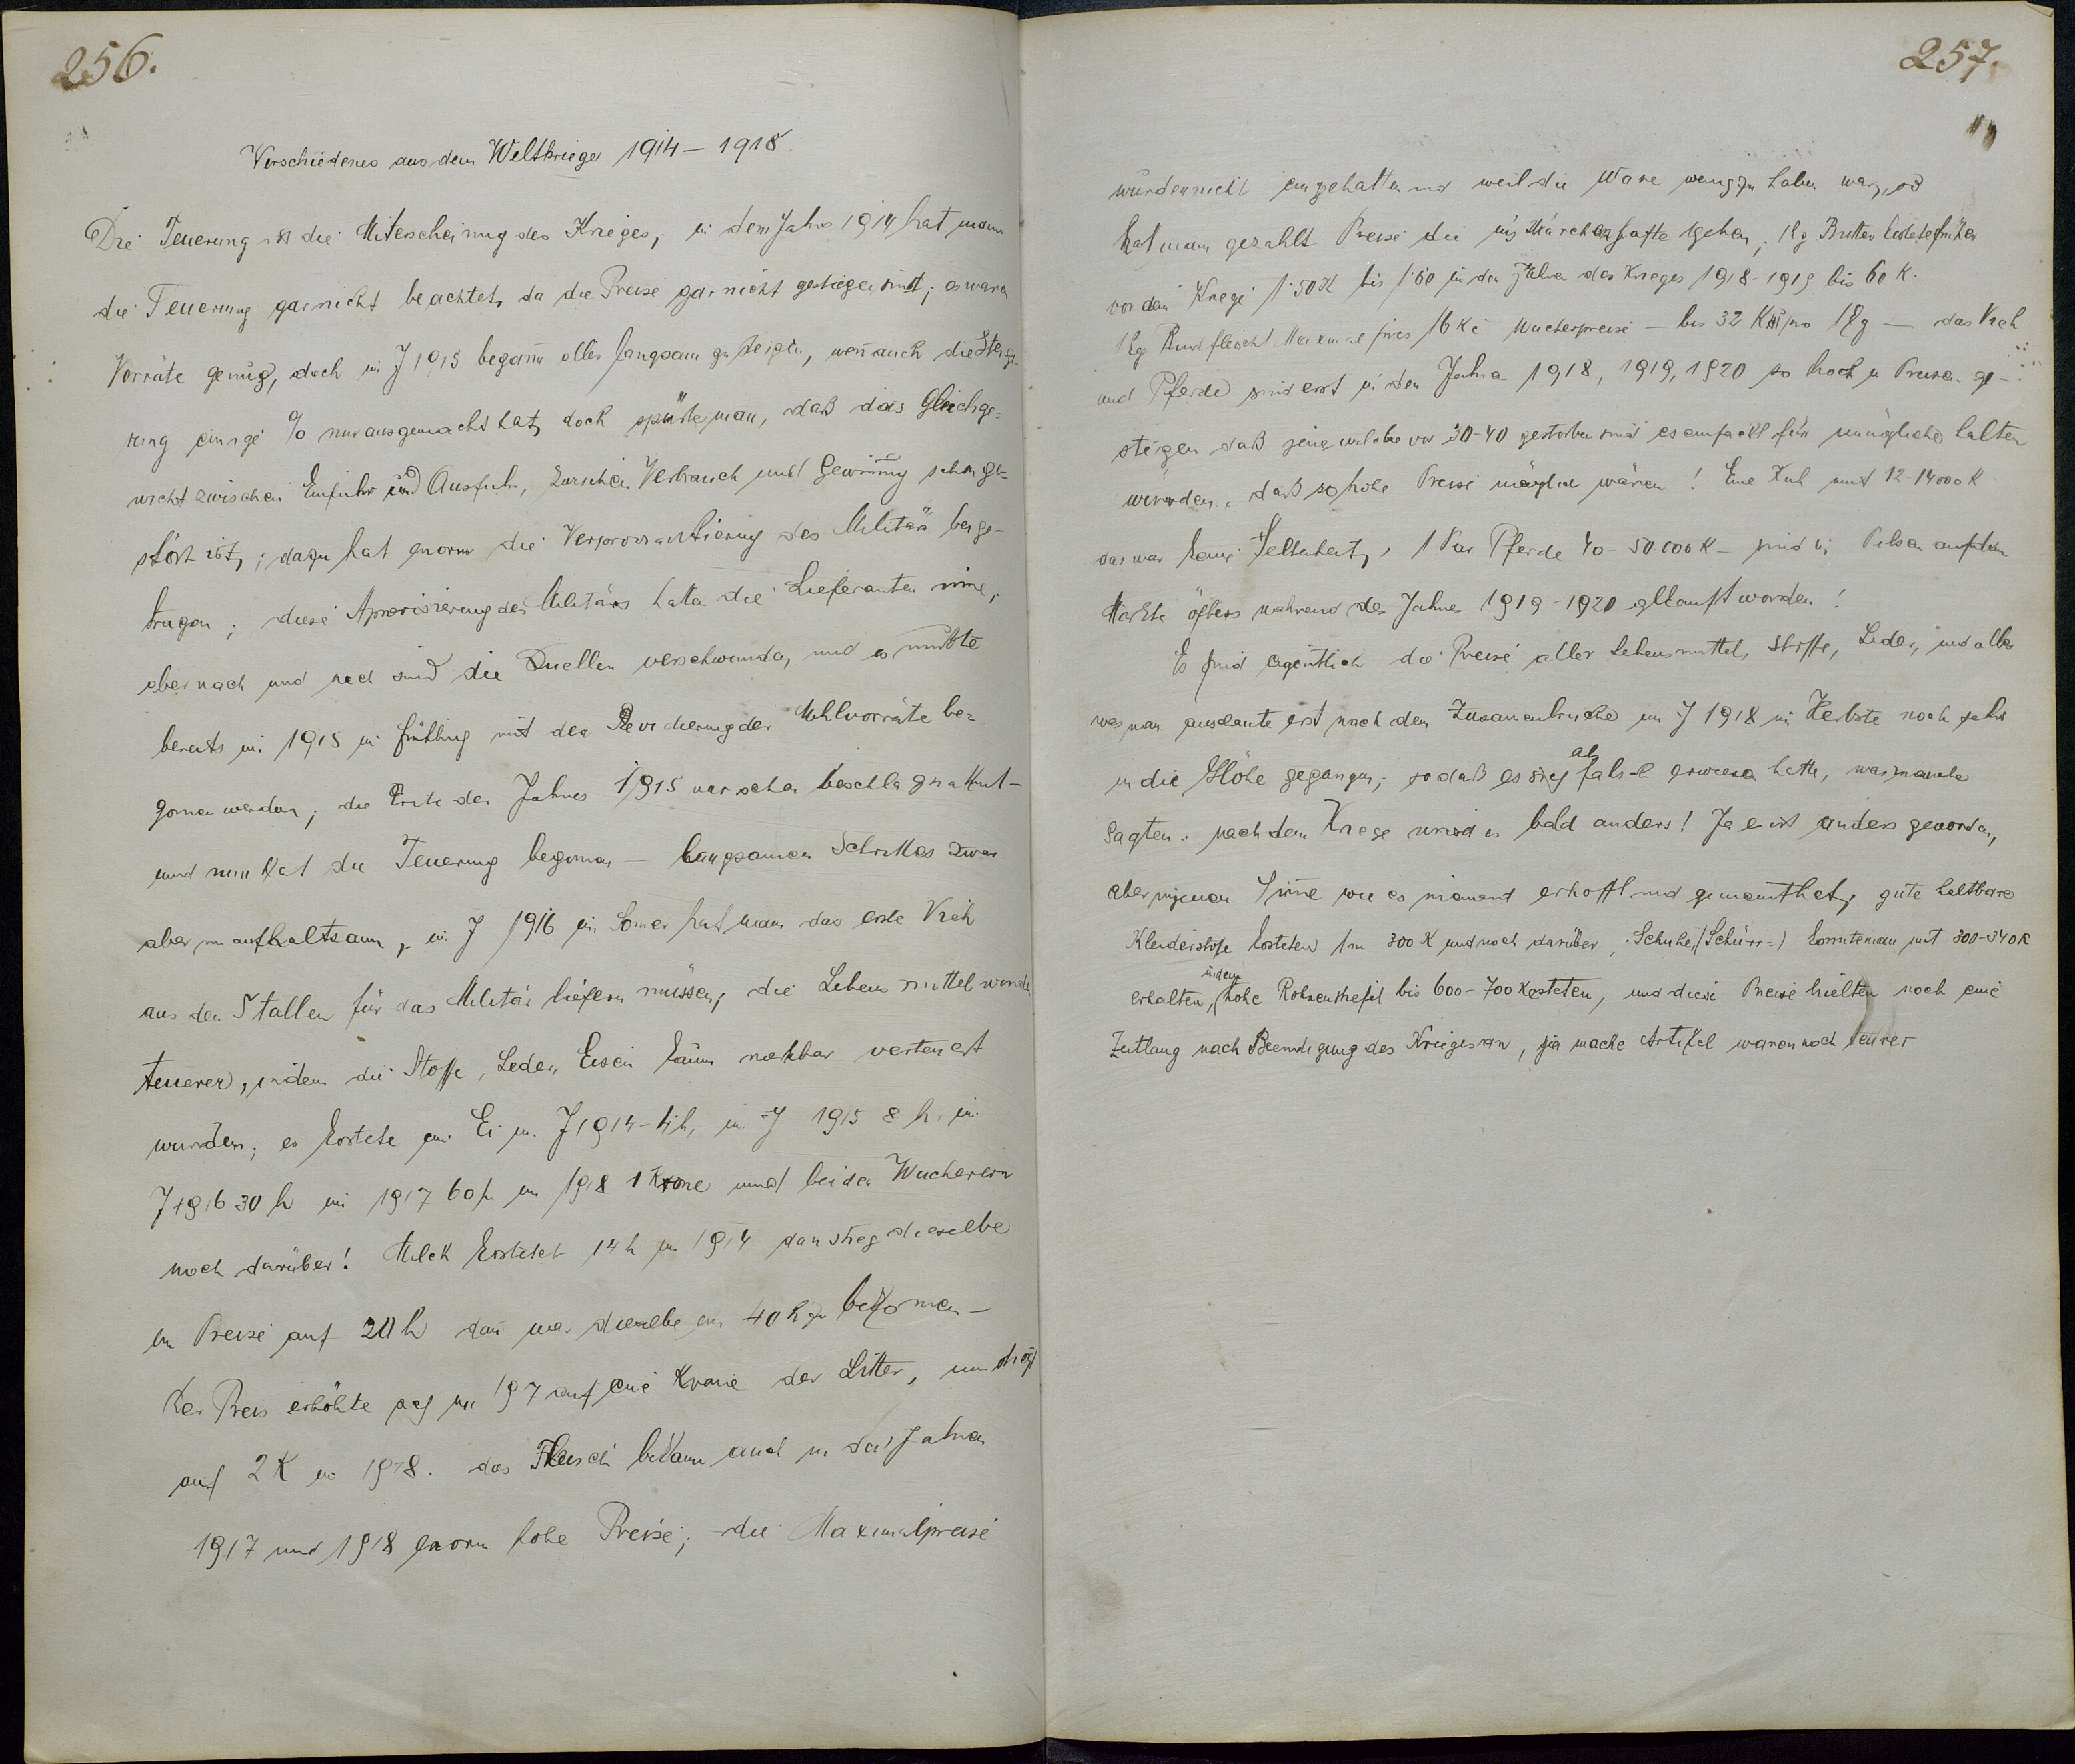 256.
Verschiedenes aus dem Weltkriege 1914 – 1918
Die Teuerung ist die Miterscheinung des Krieges; in dem Jahre 1914 hat mann
die Teuerung garnicht beachtet, da die Preise gar nicht gestiegen sind; es waren
Vorräte genug, doch im J 1915 begann alles langsam zu steigen, wen̄ auch die Steige-
rung einige % nur ausgemacht hat, doch spürte man, daß das Gleichge=
wicht zwischen Einfuhr und Ausfuhr, zwischen Verbrauch und Gewin̄ung schon ge-
stört ist; dazu hat enorm die Verproviantierung des Militärs beige-
tragen; diese Aprovisierung des Militärs hatten die Lieferanten inne,
aber nach und nach sind die Quellen verschwunden und es mußte
bereits im 1915 im Frühling mit der der Mehlvorräte be=
gonnen werden; die Ernte des Jahres 1915 war schon beschlagnahmt –
und nun hat die Teuerung begonnen – langsamen Schrittes zwar
aber unaufhaltsam, im J 1916 im Somer hat man das erste Vieh
aus den Stallen für das Militär liefern müssen; die Lebensmittel wurden
teuerer, indem die Stoffe, Leder, Eisen kaum verteuert
wurden; es kostete ein Ei im J 1914 – 4h, im J 1915 8 h. im
J 1916 30 h im 1917 60 h im 1918 1 Krone und bei den Wucherern
noch darüber! Milch kostetet 14 h im 1914 dan stieg dieselbe
im Preise auf 20 h dan̄ war dieselbe um 40 h zu bekomen –
Der Preis erhöhte sich im 1917 auf eine Krone der Litter, und
auf 2 K im 1918. das Fleisch bekam auch in den Jahren
1917 und 1918 enorm hohe Preise; – die Maximalpreise
257.
wurden nicht eingehalten und weil die Ware wenig zu haben war, so
hat man gezahlt Preise die ins Märchenhafte gehen; 1 Kg Butter kostete früher
vor dem Kriege 1·50 K bis 1·60 in den Jahren des Krieges 1918-1919 bis 60 K.
1 Kg Rindfleisch 16 Kč Wucherpreise – bis 32 K pro 1 Kg – das Vieh
und Pferde sind erst in den Jahren 1918, 1919, 1920 so hoch im Preise ge-
stiegen daß jene welche vor 30-40 gestorben sind es einfach für unmöglich halten
würden, daß so hohe Preise möglich wären! Eine Kuh mit 12-14000 K
das war keine Seltenheit, 1 Par Pferde 40-50.000 K – sind in Pilsen auf dem
Markte öfters während der Jahre 1919-1920 gekauft worden!
Es sind eigentlich die Preise aller Lebensmittel, Stoffe, Leder, und alles
was man erst nach dem Zusamenbruche im J 1918 im Herbste noch sehr
in die Höhe gegangen; so daß es sich als falsch erwiesen hatte, was manche
sagten: nach dem Kriege wird es bald anders! Ja es ist anders geworden,
aber in jenem Sin̄e wie es niemand erhofft und gemeint hat, gute haltbare
Kleiderstoffe kosteten 1 m 300 K und noch darüber, Schuhe, (Schnür=) konnte man mit 300-340 K
erhalten, indem hohe bis 600-700 K kosteten, und diese Preise hielten noch eine
Zeitlang nach Beendigung des Krieges an, ja manche Artikel waren noch teurer